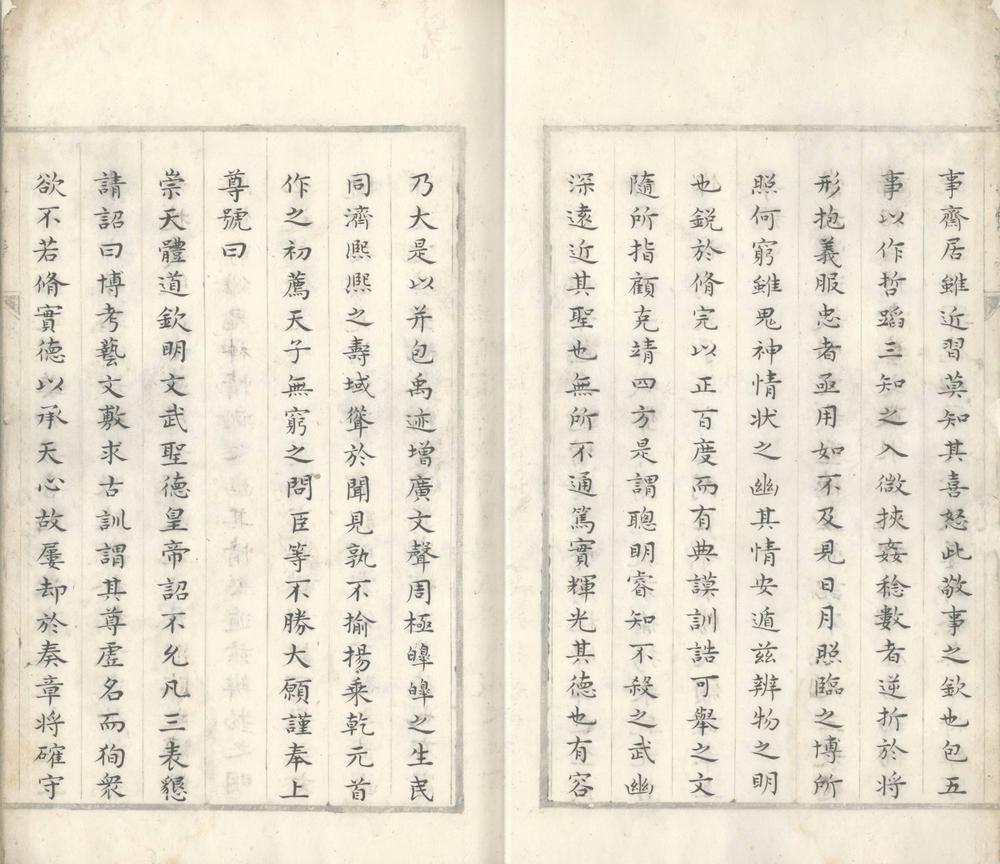 事齋居雖近習莫知其喜怒此敬事之欽也包五
事以作哲蹈三知之入微挾姦稔數者逆折於將
形抱義服忠者亟用如不及見日月照臨之博所
照何窮雖鬼神情状之幽其情安遁茲辨物之明
也鋭於脩完以正百度而有典謨訓誥可舉之文
隨所指顧克靖四方是謂聰明睿知不殺之武幽
深遠近其聖也無所不通篤實輝光其德也有容
乃大是以并包禹迹增廣文聲周極皥皥之生民
同濟熙熙之壽域聳於聞見孰不揄揚乘乾元首
作之初薦天子無窮之問臣等不勝大願謹奉上
尊號曰
崇天體道欽明文武聖德皇帝詔不允凡三表懇
請詔曰博考藝文敷求古訓謂其尊虛名而狥衆
欲不若脩實德以承天心故屢却於奏章將確守